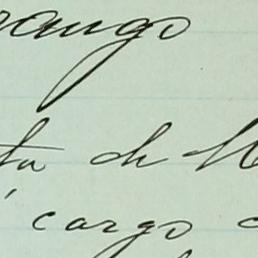 rango
ta de M
cargo